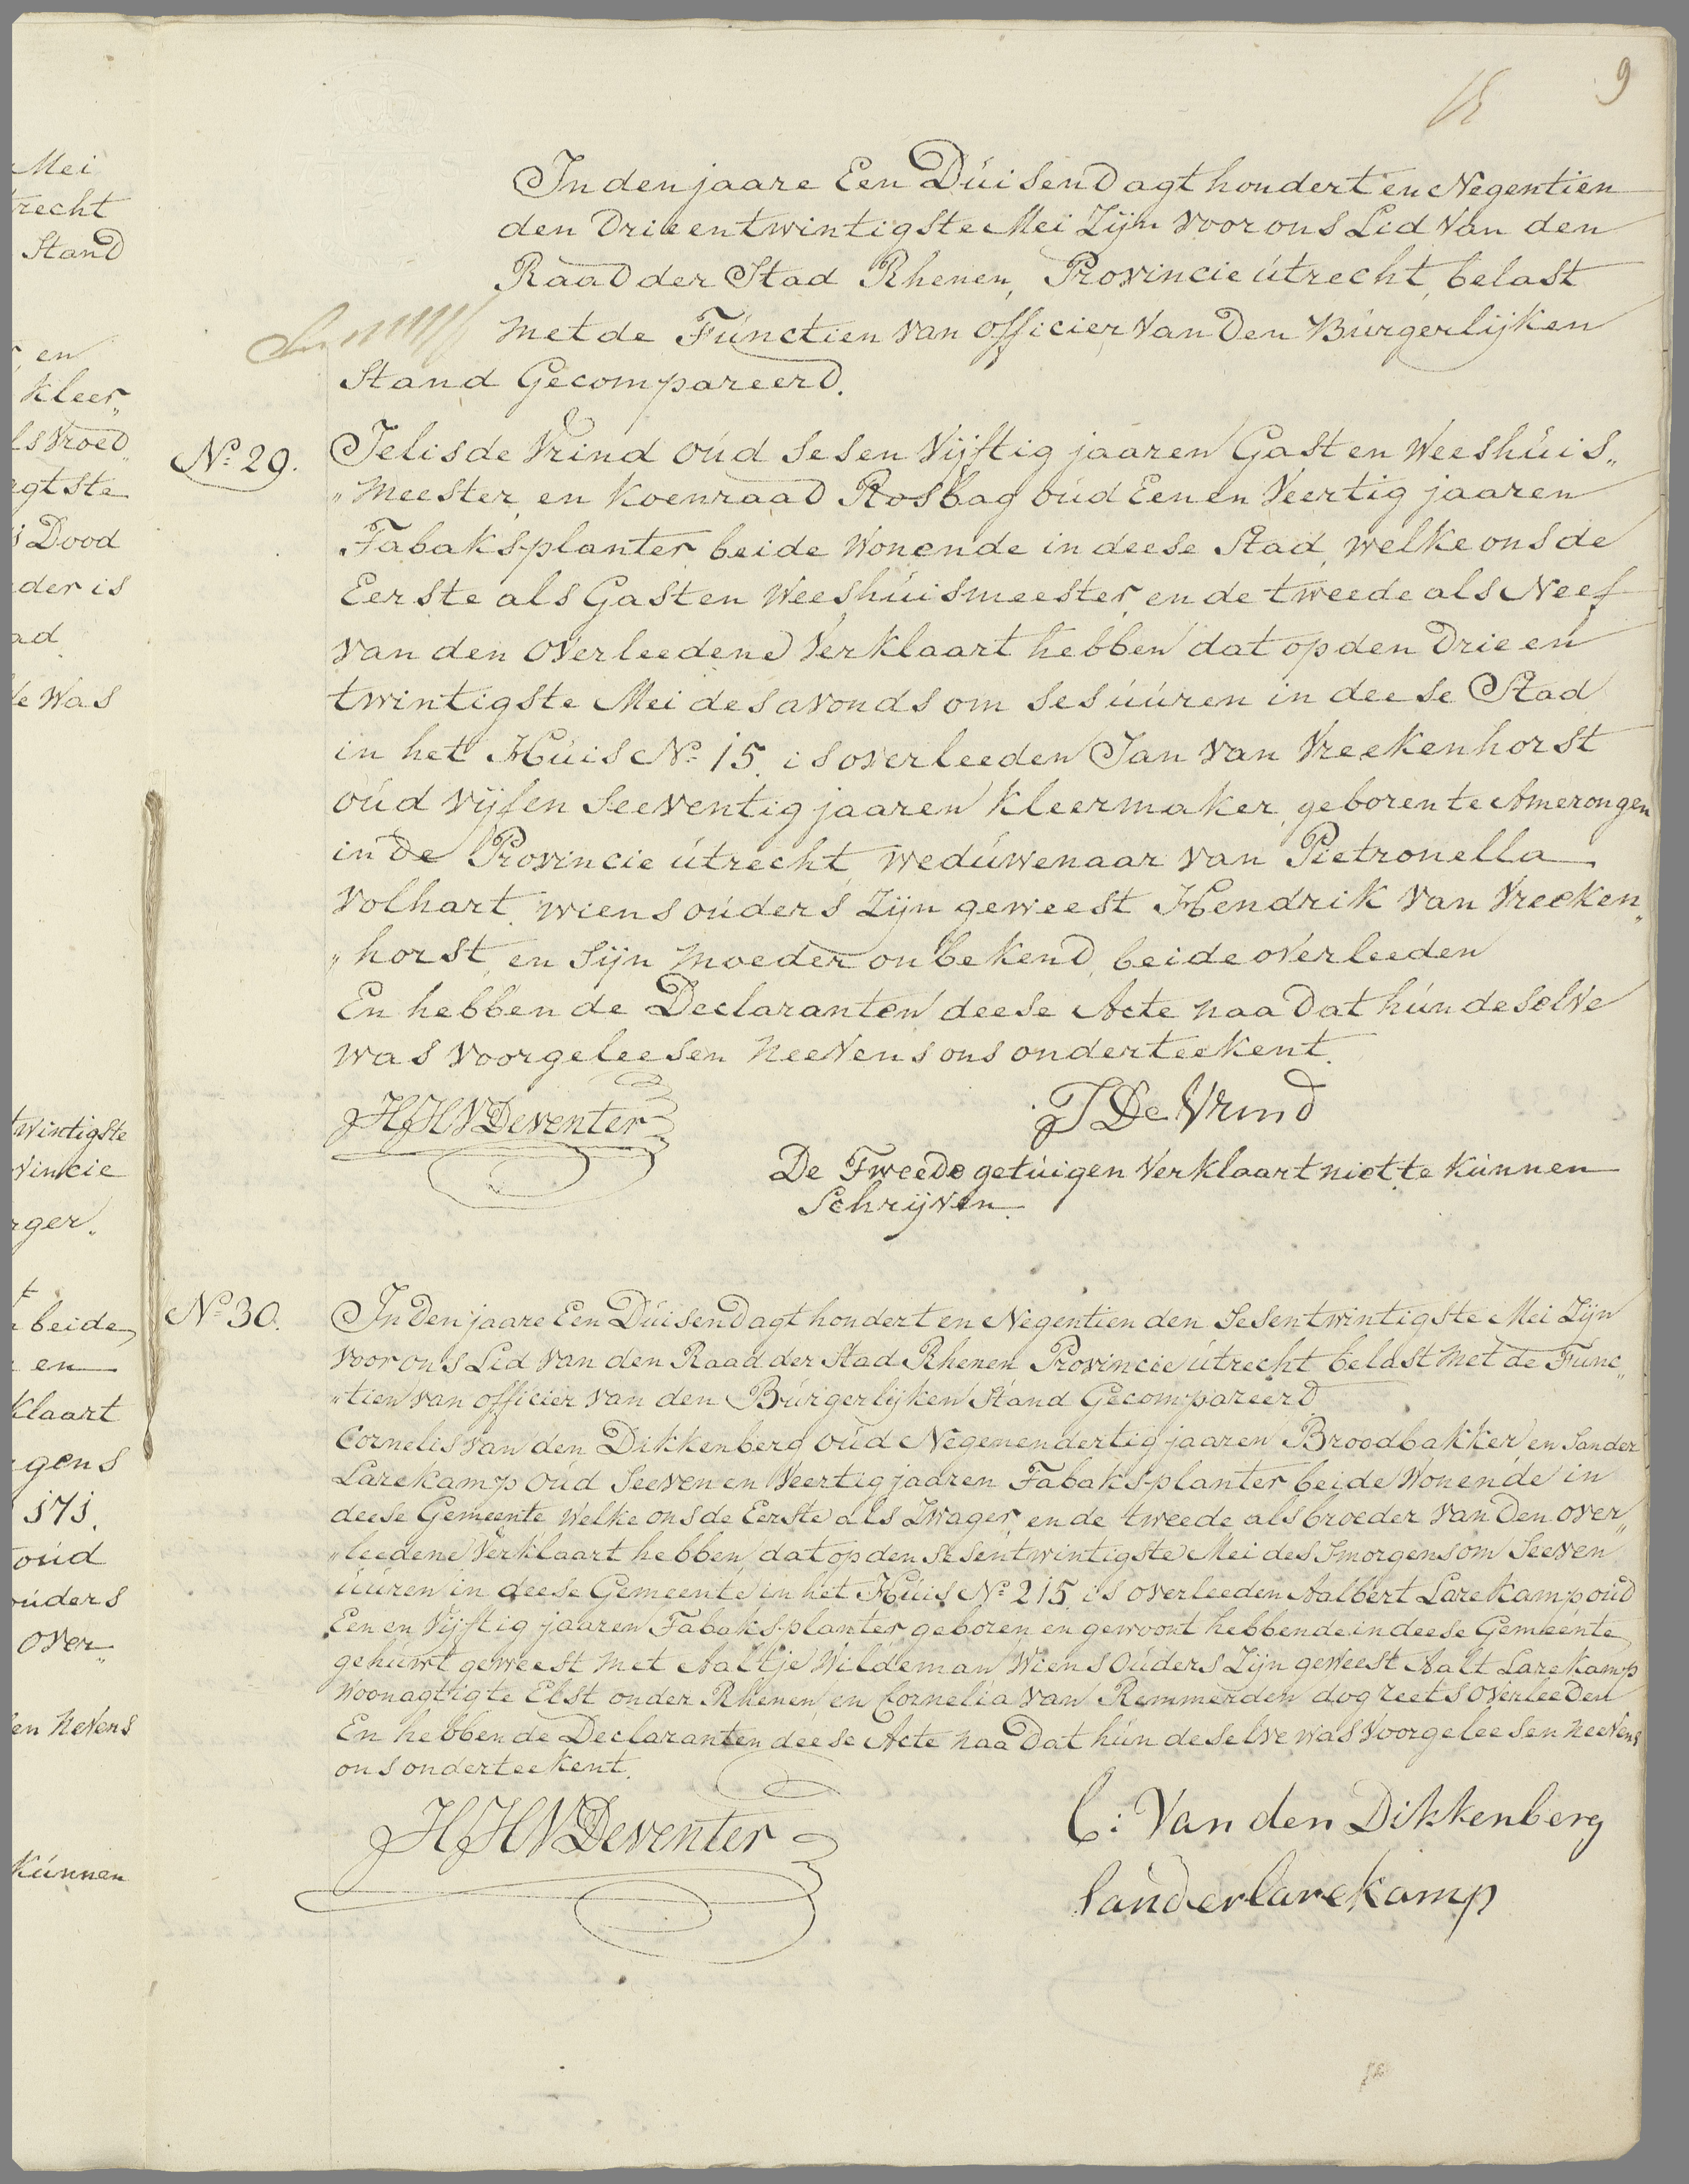 9
In den jaare Een Duisend agt hondert en Negentien
den Drie en twintigste Mei Zijn voor ons Lid van den
Raad der Stad Rhenen, Provincie utrecht, belast
met de Functien van officier van Den Burgerlijken
Stand Gecompareerd.
No. 29.
Jelis de Vrind oud ses en Vijftig jaaren Gast en Weeshuis„
„meester, en Koenraad Rosbag oud Een en Veertig jaaren
Tabaksplanter, beide Wonende in deese Stad, welke ons de
Eerste als Gast en Weeshuismeester, en de tweede als Neef
van den overleedene Verklaart hebben dat op den Drie en
twintigste Mei des avonds om ses uuren in deese Stad
in het Huis No. 15. is overleeden Jan van Vreekenhorst
oud vijf en Seeventig jaaren Kleermaker, geboren te Amerongen
in de Provincie utrecht, weduwenaar van Pietronella
Volhart, wiens ouders Zijn geweest Hendrik van Vreeken„
„horst, en Sijn moeder onbekend, beide overleeden
En hebben de Declaranten deese Acte naa Dat hun deselve
was voorgeleesen neevens ons onderteekent.
HJHV Deventer
J De Vrind
De Tweede getuigen Verklaart niet te Kunnen
Schrijven.
No. 30.
In Den jaare Een Duisend agt hondert en Negentien den Ses en twintigste Mei Zijn
voor ons Lid van den Raad der Stad Rhenen Provincie utrecht belast met de Func„
„tien van officier van den Burgerlijken Stand Gecompareerd.
Cornelis van den Dikkenberg oud Negen en dertig jaaren Broodbakker en Sander
Larekamp oud Seeven en Veertig jaaren Tabaksplanter beide Wonende in
deese Gemeente Welke ons de Eerste als Zwager, en de tweede als broeder van Den over„
„leedene Verklaart hebben dat op den Ses en twintigste Mei des Smorgens om Seeven
uuren in deese Gemeente in het Huis No. 215. is overleeden Aalbert Larekamp oud
Een en Vijftig jaaren Tabaksplanter geboren en gewoont hebbende in deese Gemeente
gehuwt geweest met Aaltje Wildeman Wiens Ouders Zijn geweest Aalt Larekamp
Woonagtig te Elst onder Rhenen en Cornelia van Remmerden dog reets overleeden
En hebben de Declaranten deese Acte naa Dat hun deselve was Voorgeleesen neevens
ons onderteekent.
HJHV Deventer
C: Van den Dikkenberg
Sander larekamp
Mei
recht
Stand
en
Kleer„
ls Vroed„
agtste
Dood
der is
ad
Was
twintigste
vincie
rger.
beide,
en
klaart
gens
171.
oud
ouders
over„
en nevens
Kunnen